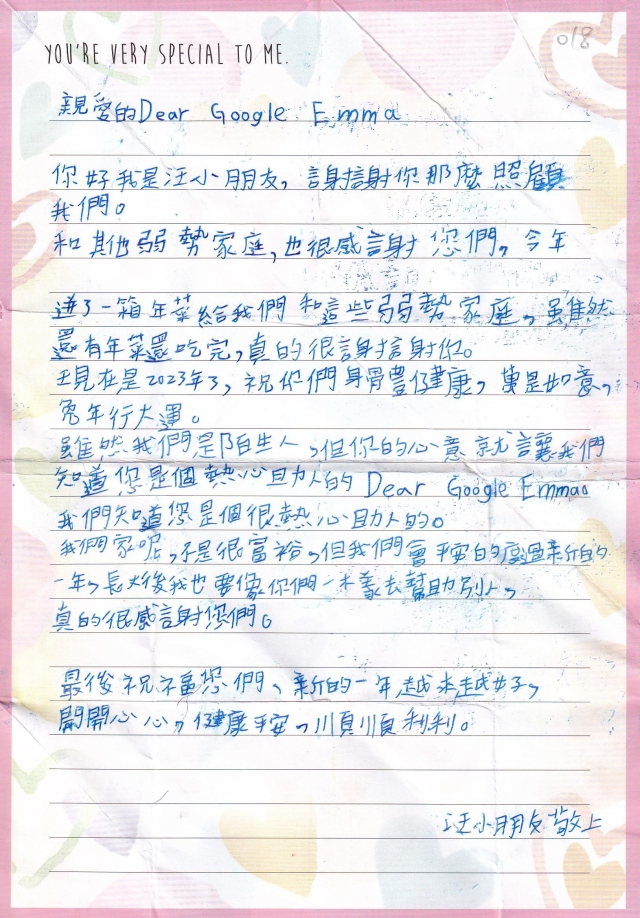 YOU'RE VERY SPECIAL TO ME.
018
親愛的Dear Google Emma
你好我是汪小朋友，謝謝你那麼照顧
我們。
和其他弱勢家庭，也很感謝您們，今年
送了一箱年菜給我們和這些弱勢家庭，雖然
還有年菜還吃完，真的很謝謝你。
現在是2023年了，祝你們身體健康，萬是如意，
兔年行大運。
雖然我們是陌生人，但你的心意就讓我們
知道您是個熱心助人的Dear Google Emma。
我們知道您是個很熱心助人的。
我們家呢，不是很富裕，但我們會平安的度過新的
一年，長大後我也要像你們一樣去幫助別人，
真的很感謝您們。
最後祝福您們、新的一年越來越好，
開開心心，健康平安，順順利利。
汪小朋友敬上